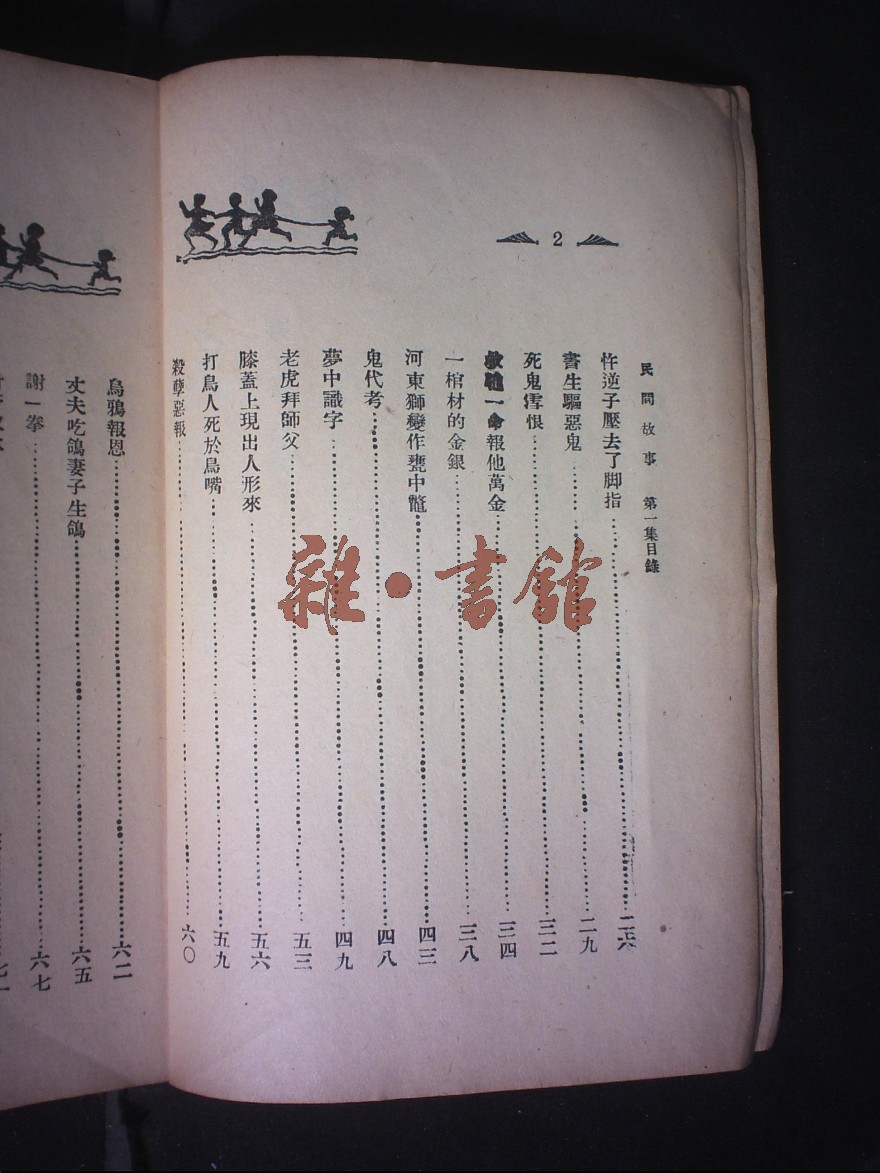 2
民間故事 第一集目錄
忤逆子壓去了脚指 二六
書生驅惡鬼 二九
死鬼雪恨 三二
救他一命報他萬金 三四
一棺材的金銀 三八
河東獅變作甕中鼈 四三
鬼代考 四八
夢中識字 四九
老虎拜師父 五三
膝蓋上現出人形來 五六
打鳥人死於鳥嘴 五九
殺孽惡報 六〇
烏鴉報恩 六二
丈夫吃鴿妻子生鴿 六五
謝一拳 六七
雜·書館